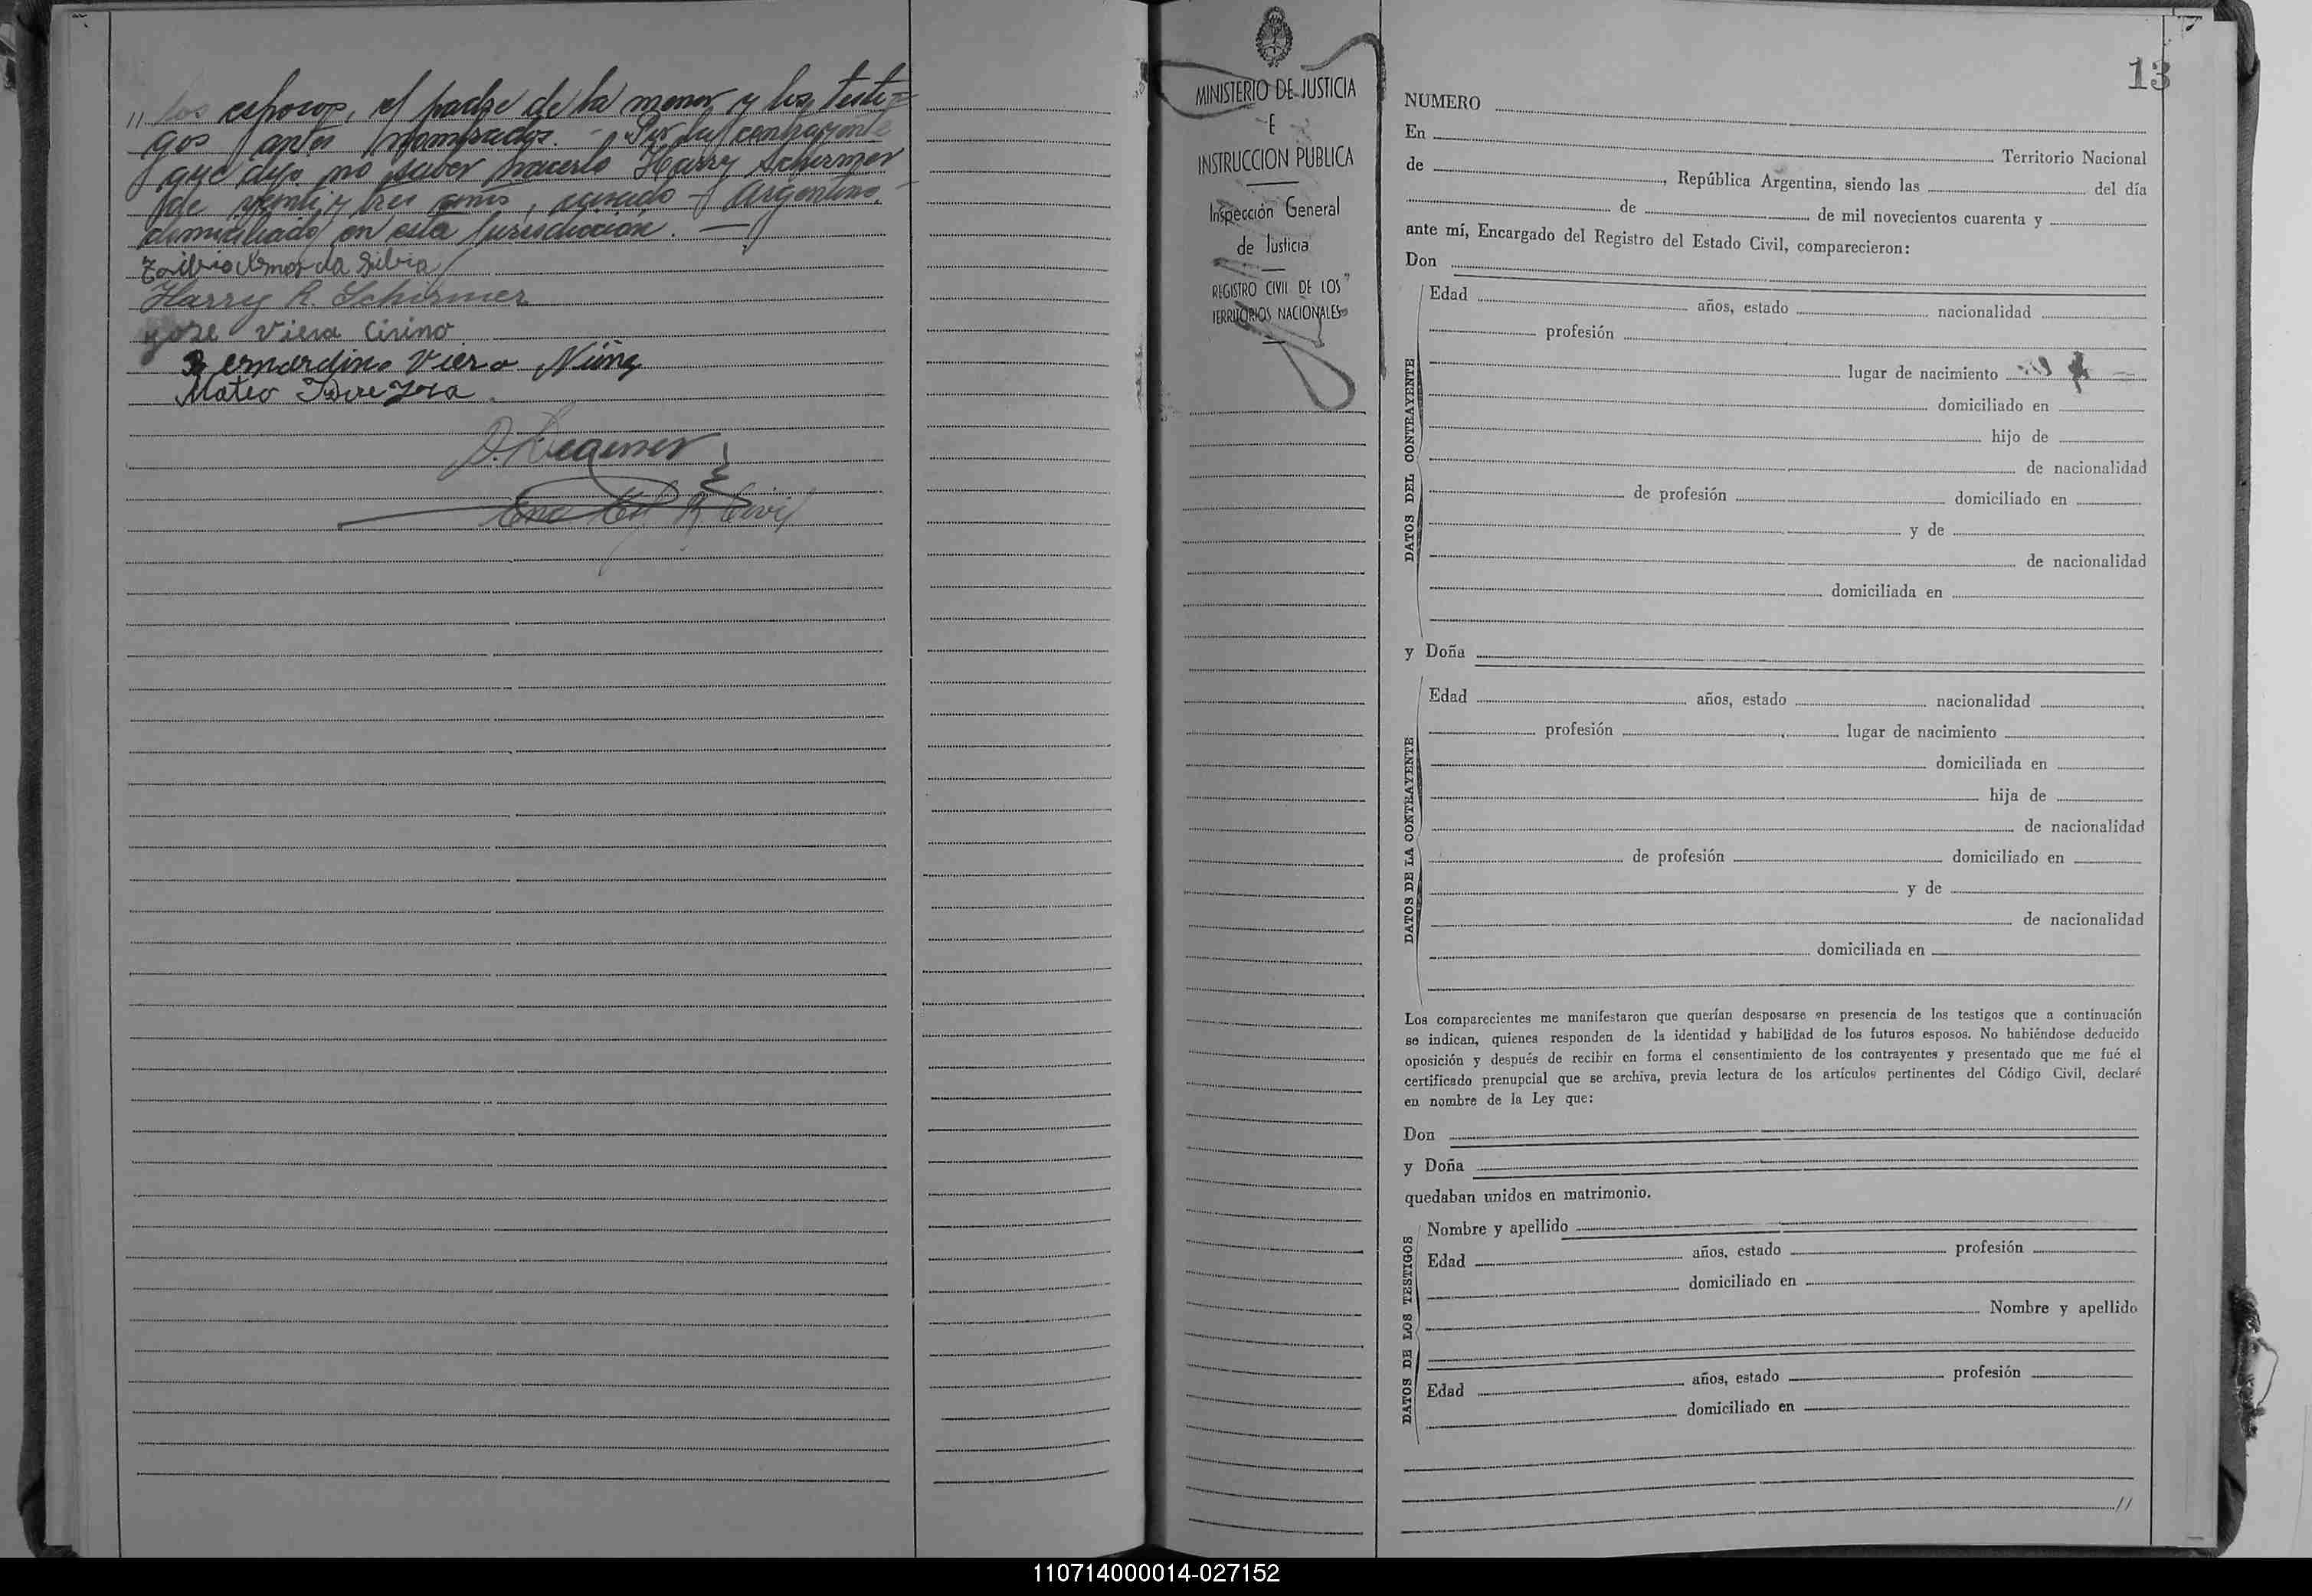 // los esposos, el padre de la menor y los testi=
gos antes nombrados. - Por la contrayente
que dijo no saber hacerlo Harry Schirmer
de veinti y tres años, casado - Argentino. -
domiciliado en esta Jurisdicción. —
da Silvia
Harry R. Schirmer
Jose Viera Cirino
Bernardino Viera Núñez
Mateo
R. Civil
MINISTERIO DE JUSTICIA
E
INSTRUCCION PUBLICA
Inspección General
de Justicia
REGISTRO CIVIL DE LOS
TERRITORIOS NACIONALES
13
NUMERO
En Territorio Nacional
de , República Argentina, siendo las del día
de de mil novecientos cuarenta y
ante mí, Encargado del Registro del Estado Civil, comparecieron:
Don
DATOS DEL CONTRAYENTE
Edad años, estado nacionalidad
profesión
lugar de nacimiento
domiciliado en
hijo de
de nacionalidad
de profesión domiciliado en
y de
de nacionalidad
domiciliada en
y Doña
DATOS DE LA CONTRAYENTE
Edad años, estado nacionalidad
profesión lugar de nacimiento
domiciliada en
hija de
de nacionalidad
de profesión domiciliado en
y de
de nacionalidad
domiciliada en
Los comparecientes me manifestaron que querían desposarse en presencia de los testigos que a continuación
se indican, quienes responden de la identidad y habilidad de los futuros esposos. No habiéndose deducido
oposición y después de recibir en forma el consentimiento de los contrayentes y presentado que me fué el
certificado prenupcial que se archiva, previa lectura de los artículos pertinentes del Código Civil, declaré
en nombre de la Ley que:
Don
y Doña
quedaban unidos en matrimonio.
DATOS DE LOS TESTIGOS
Nombre y apellido
Edad años, estado profesión
domiciliado en
Nombre y apellido
Edad años, estado profesión
domiciliado en
//
110714000014-027152